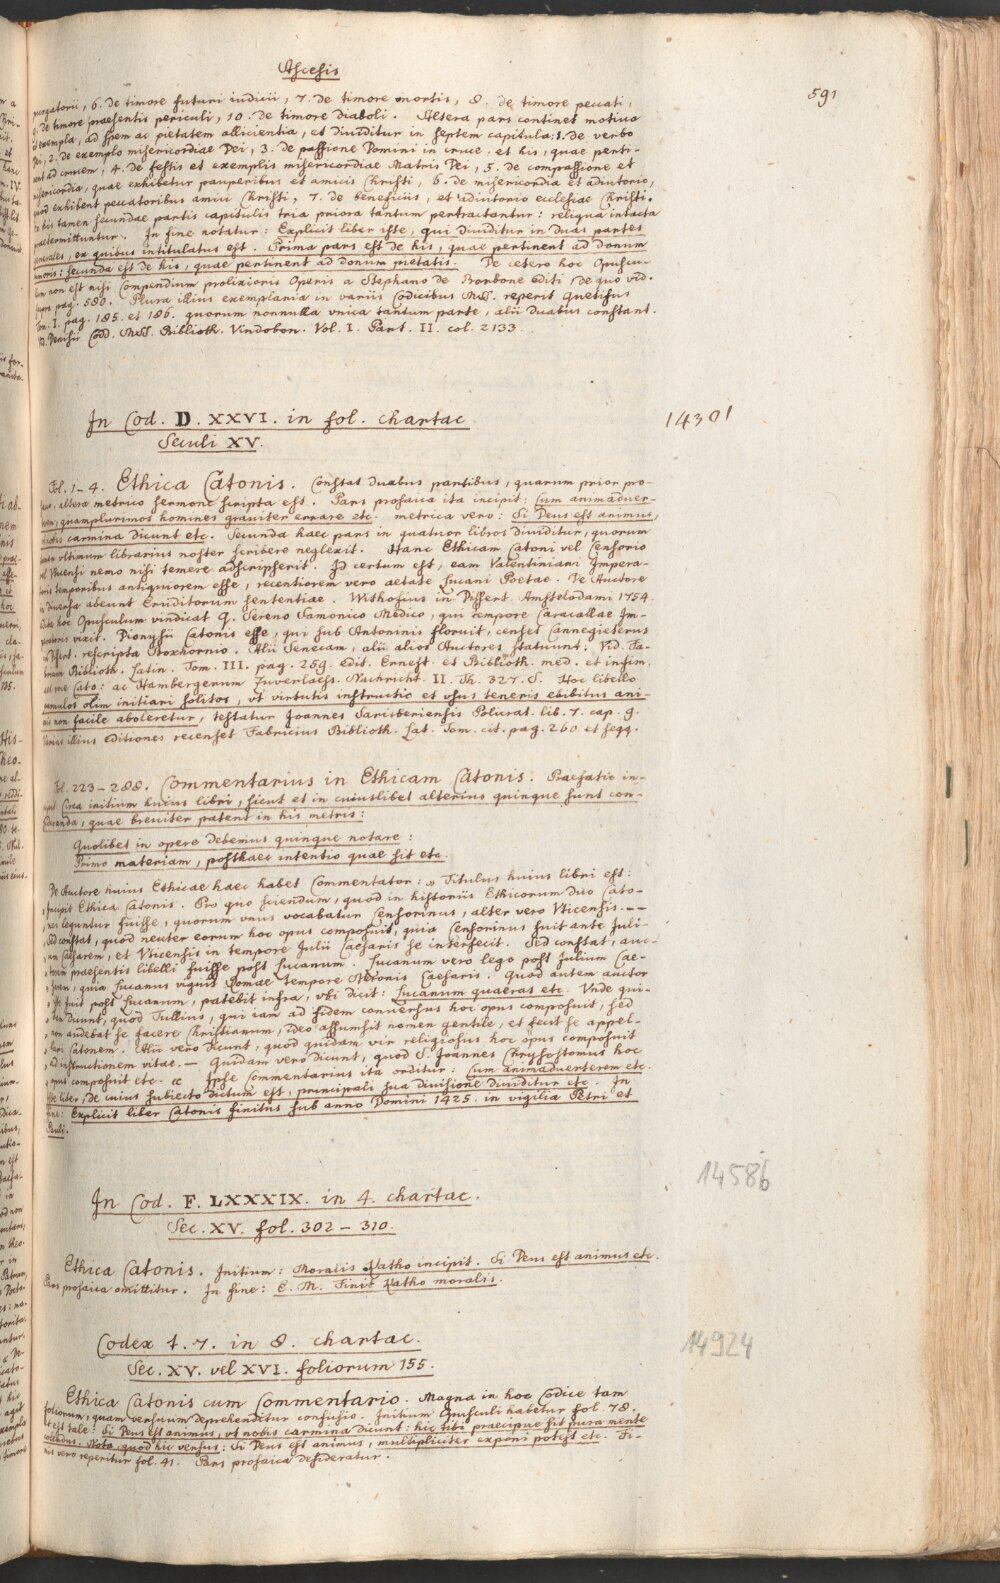 Ascesis
591
purgatorii, 6. de timore futuri iudicii, 7. de timore mortis, 8. de timore peccati,
9. de timore praesentis periculi, 10. de timore diaboli. Altera pars continet motiva
et exempla, ad spem ac pietatem allicientia, et dividitur in septem capitula: 1. de verbo
Dei, 2. de exemplo misericordiae Dei, 3. de passione Domini in cruce, et his, quae perti-
nent ad crucem, 4. de festis et exemplis misericordiae Matris Dei, 5. de compassione et
misericordia, quae exhibetur pauperibus et amicis Christi, 6. de misericordia et adiutorio,
quod exhibent peccatoribus amici Christi, 7. de beneficiis, et adiutorio ecclesiae Christi.
Ex his tamen secundae partis capitulis tria priora tantum pertractantur: reliqua intacta
praetermittuntur. In fine notatur: Explicit liber iste, qui dividitur in duas partes
generales, ex quibus intitulatus est. Prima pars est de his, quae pertinent ad donum
timoris: secunda est de his, quae pertinent ad donum pietatis. De cetero hoc Opuscu-
lum non est nisi Compendium prolixioris Operis a Stephano de Borbone editi, de quo vid.
supra pag. 580. Plura illius exemplaria in variis Codicibus Mss. reperit Quetifus
Tom. I. pag. 185. et 186. quorum nonnulla unica tantum parte, alii duabus constant.
Vid. Denisii Codd. Mss. Biblioth. Vindobon. Vol. I. Part. II. col. 2133.
In Cod. D. XXVI. in fol. chartac.
14301
Seculi XV.
Fol. 1-4. Ethica Catonis. Constat duabus partibus, quarum prior pro-
saica, altera metrico sermone scripta est. Pars prosaica ita incipit: Cum animadver-
terem, quamplurimos homines graviter errare etc. metrica vero: Si Deus est animus,
nobis carmina dicunt etc. Secunda haec pars in quatuor libros dividitur, quorum
tamen ultimum librarius noster scribere neglexit. Hanc Ethicam Catoni vel Censorio
vel Uticensi nemo nisi temere adscripserit. Id certum est, eam Valentiniani Impera-
toris temporibus antiquiorem esse, recentiorem vero aetate Lucani Poetae. De Auctore
in diversa abeunt Eruditorum sententiae. Withofius in Dissert. Amstelodami 1754.
edita hoc Opusculum vindicat Q. Sereno Samonico Medico, qui tempore Caracallae Im-
peratoris vixit. Dionysii Catonis esse, qui sub Antoninis floruit, censet Cannegieterus
in Dissert. rescripta Boxhornio. Alii Senecam, alii alios Auctores statuunt. Vid. Fa-
bricium Biblioth. Latin. Tom. III. pag. 259. edit. Ernest. et Biblioth. med. et infim.
aet. voce Cato: ac Hambergerum Zuverlaess. Nachricht. II. Th. 327. S. Hoc libello
aemulos olim initiari solitos, ut virtutis instructio et usus teneris ebibitus ani-
mis non facile aboleretur, testatur Joannes Sarisberiensis Policrat. lib. 7. cap. 9.
Varias illius editiones recenset Fabricius Biblioth. Lat. Tom. cit. pag. 260. et seqq.
Fol. 223-288. Commentarius in Ethicam Catonis. Praefatio in-
cipit: Circa initium huius libri, sicut et in cuiuslibet alterius quinque sunt con-
sideranda, quae breviter patent in his metris:
Quolibet in opere debemus quinque notare:
Primo materiam, posthaec intentio quae sit etc.
De Auctore huius Ethicae haec habet Commentator: „ Titulus huius libri est:
„ Incipit Ethica Catonis. Pro quo sciendum, quod in historiis Ethicorum duo Cato-
„ nes leguntur fuisse, quorum unus vocabatur Censorinus, alter vero Uticensis. --
„ Sed constat, quod neuter eorum hoc opus composuit, quia Censorinus fuit ante Juli-
„ um Caesarem, et Uticensis in tempore Julii Caesaris se interfecit. Sed constat, auc-
„ torem praesentis libelli fuisse post Lucanum. Lucanum vero lego post Julium Cae-
„ sarem, quia Lucanus viguit Romae tempore Neronis Caesaris. Quod autem auctor
„ iste fuit post Lucanum, patebit infra, ubi dicit: Lucanum quaeras etc. Unde qui-
„ dam dicunt, quod Tullius, qui iam ad fidem conversus hoc opus composuit, sed
„ non audebat se facere Christianum, ideo assumsit nomen gentile, et fecit se appel-
„ lari Catonem. Alii vero dicunt, quod quidam vir religiosus hoc opus composuit
„ ad instructionem vitae. — Quidam vero dicunt, quod S. Joannes Chrysostomus hoc
„ opus composuit etc. „ Ipse Commentarius ita orditur: Cum animadverterem etc.
Iste liber, de cuius subiecto dictum est, principali sua divisione dividitur etc. In
fine: Explicit liber Catonis finitus sub anno Domini 1425. in vigilia Petri et
Pauli.
14586
In Cod. F. LXXXIX. in 4. chartac.
Sec. XV. fol. 302-310.
Ethica Catonis. Initium: Moralis Katho incipit. Si Deus est animus etc.
Pars prosaica omittitur. In fine: E. M. Finit Katho moralis.
Codex 1. 7. in 8. chartac.
14924
Sec. XV. vel XVI. foliorum 155.
Ethica Catonis cum Commentario. Magna in hoc Codice tam
foliorum, quam versuum deprehenditur confusio. Initium Opusculi habetur fol. 78.
et est tale: Si Deus est animus, ut nobis carmina dicunt: hic tibi praecipue sit pura mente
colendus. Nota, quod hic versus: Si Deus est animus, multipliciter exponi potest etc. Fi-
nis vero reperitur fol. 41. Pars prosaica desideratur.